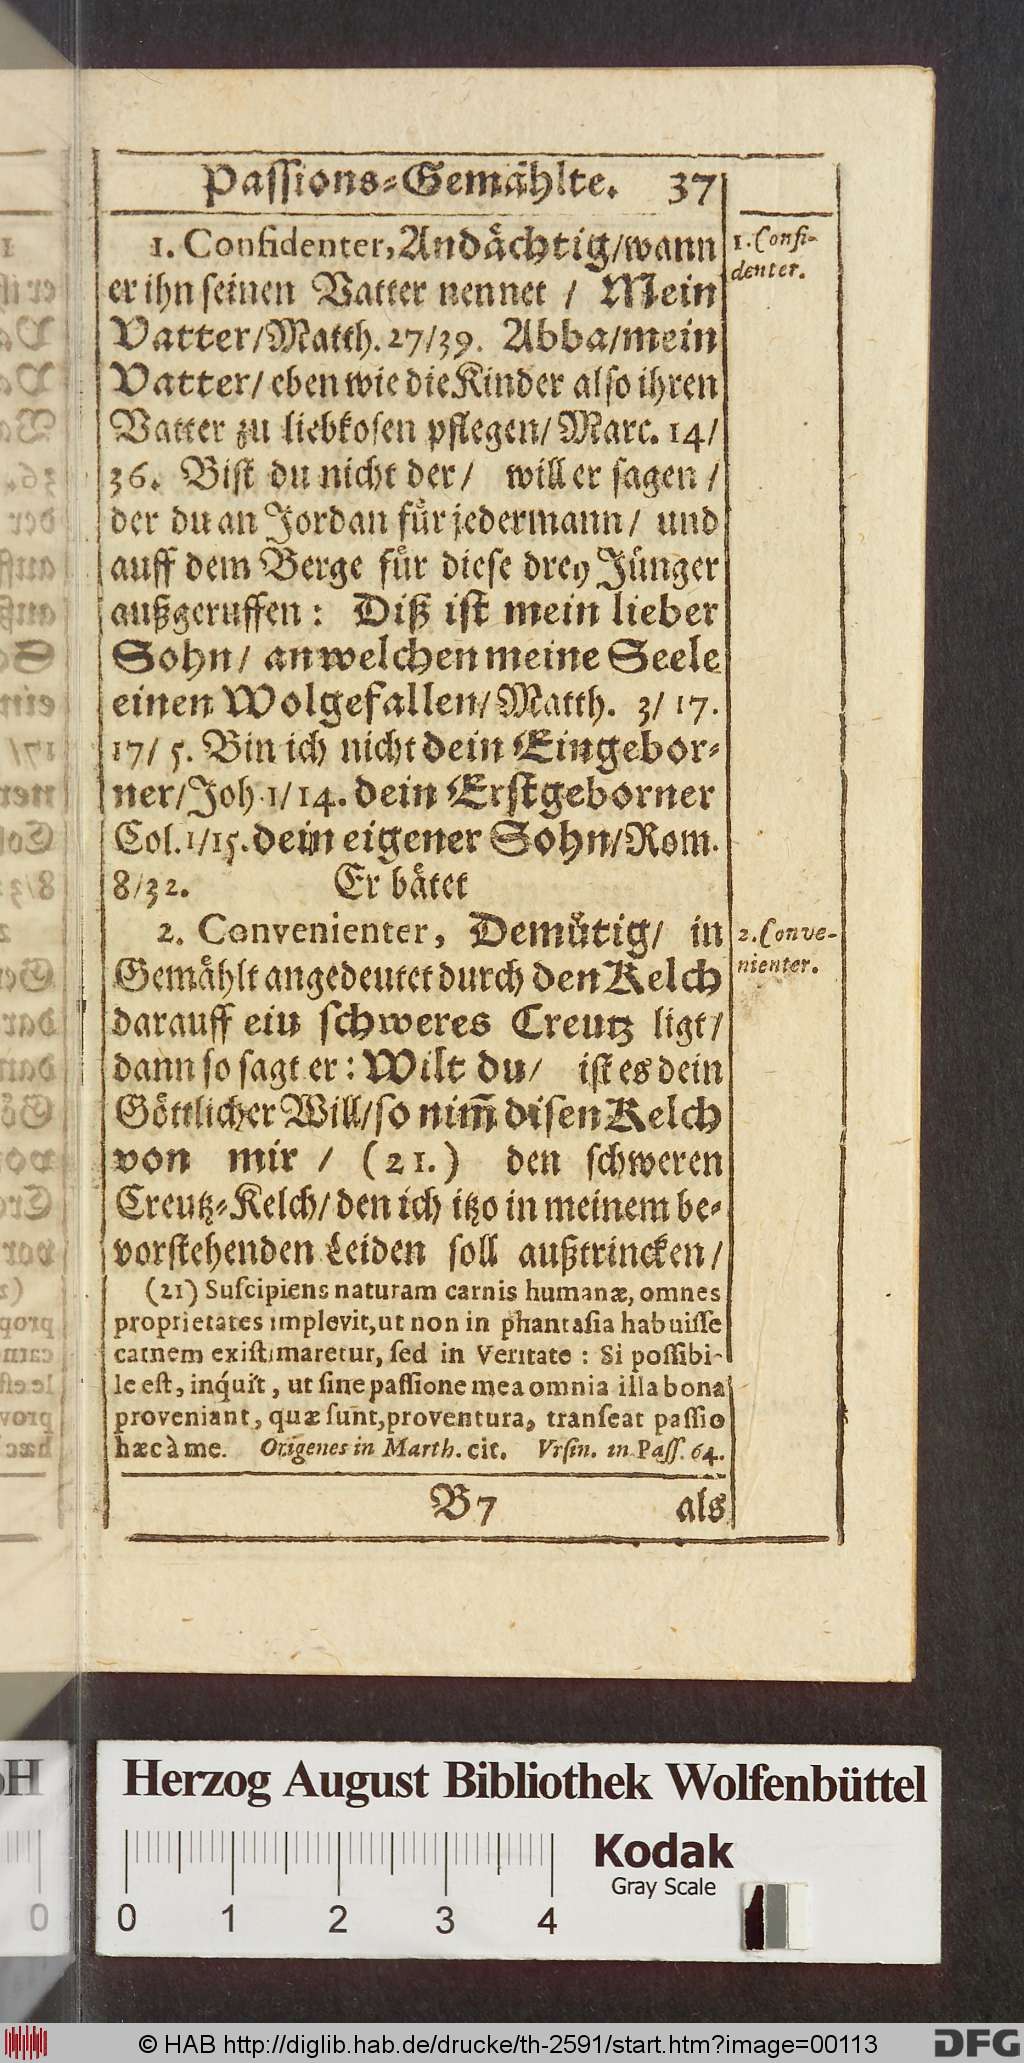 Passions-Gemählte. 37
1. Confidenter, Andächtig/wann
er ihn seinen Vatter nennet / Mein
Vatter/Matth. 27/39. Abba/mein
Vatter/ eben wie die Kinder also ihren
Vatter zu liebkosen pflegen/ Marc. 14/
36. Bist du nicht der/ will er sagen /
der du an Jordan für jedermann/ und
auff dem Berge für diese drey Jünger
außgeruffen: Diß ist mein lieber
Sohn/ an welchen meine Seele
einen Wolgefallen/ Matth. 3/ 17.
17/ 5. Bin ich nicht dein Eingebor-
ner/Joh. 1/14. dein Erstgeborner
Col. 1/15. dein eigener Sohn/Rom.
8/32. Er bätet
2. Convenienter, Demütig/ in
Gemählt angedeutet durch den Kelch
darauff ein schweres Creutz ligt/
dann so sagt er: Wilt du/ ist es dein
Göttlicher Will/so nim̃ disen Kelch
von mir / (21.) den schweren
Creutz-Kelch/ den ich itzo in meinem be-
vorstehenden Leiden soll außtrincken/
(21) Suscipiens naturam carnis humanæ, omnes
proprietates implevit, ut non in phantasia habuisse
carnem existimaretur, sed in Veritate: Si possibi-
le est, inquit, ut sine passione mea omnia illa bona
proveniant, quæ sunt, proventura, transeat passio
hæc à me. Origenes in Matth. cit. Vrsin. in Pass. 64.
B7 als
1. Confi-
denter.
2. Conve-
nienter.
Herzog August Bibliothek Wolfenbüttel
Kodak
Gray Scale
0 1 2 3 4
0
© HAB http://diglib.hab.de/drucke/th-2591/start.htm?image=00113
DFG